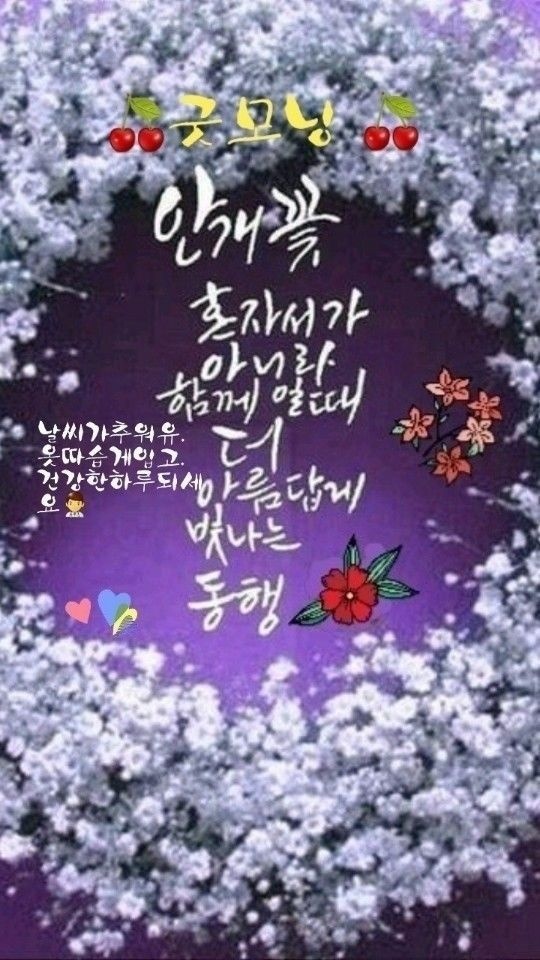 굿모닝
안개꽃
혼자서가
아니라
함께 일때
더
아름답게
빛나는
동행
날씨가추워유.
옷따습게입고.
건강한하루되세
요